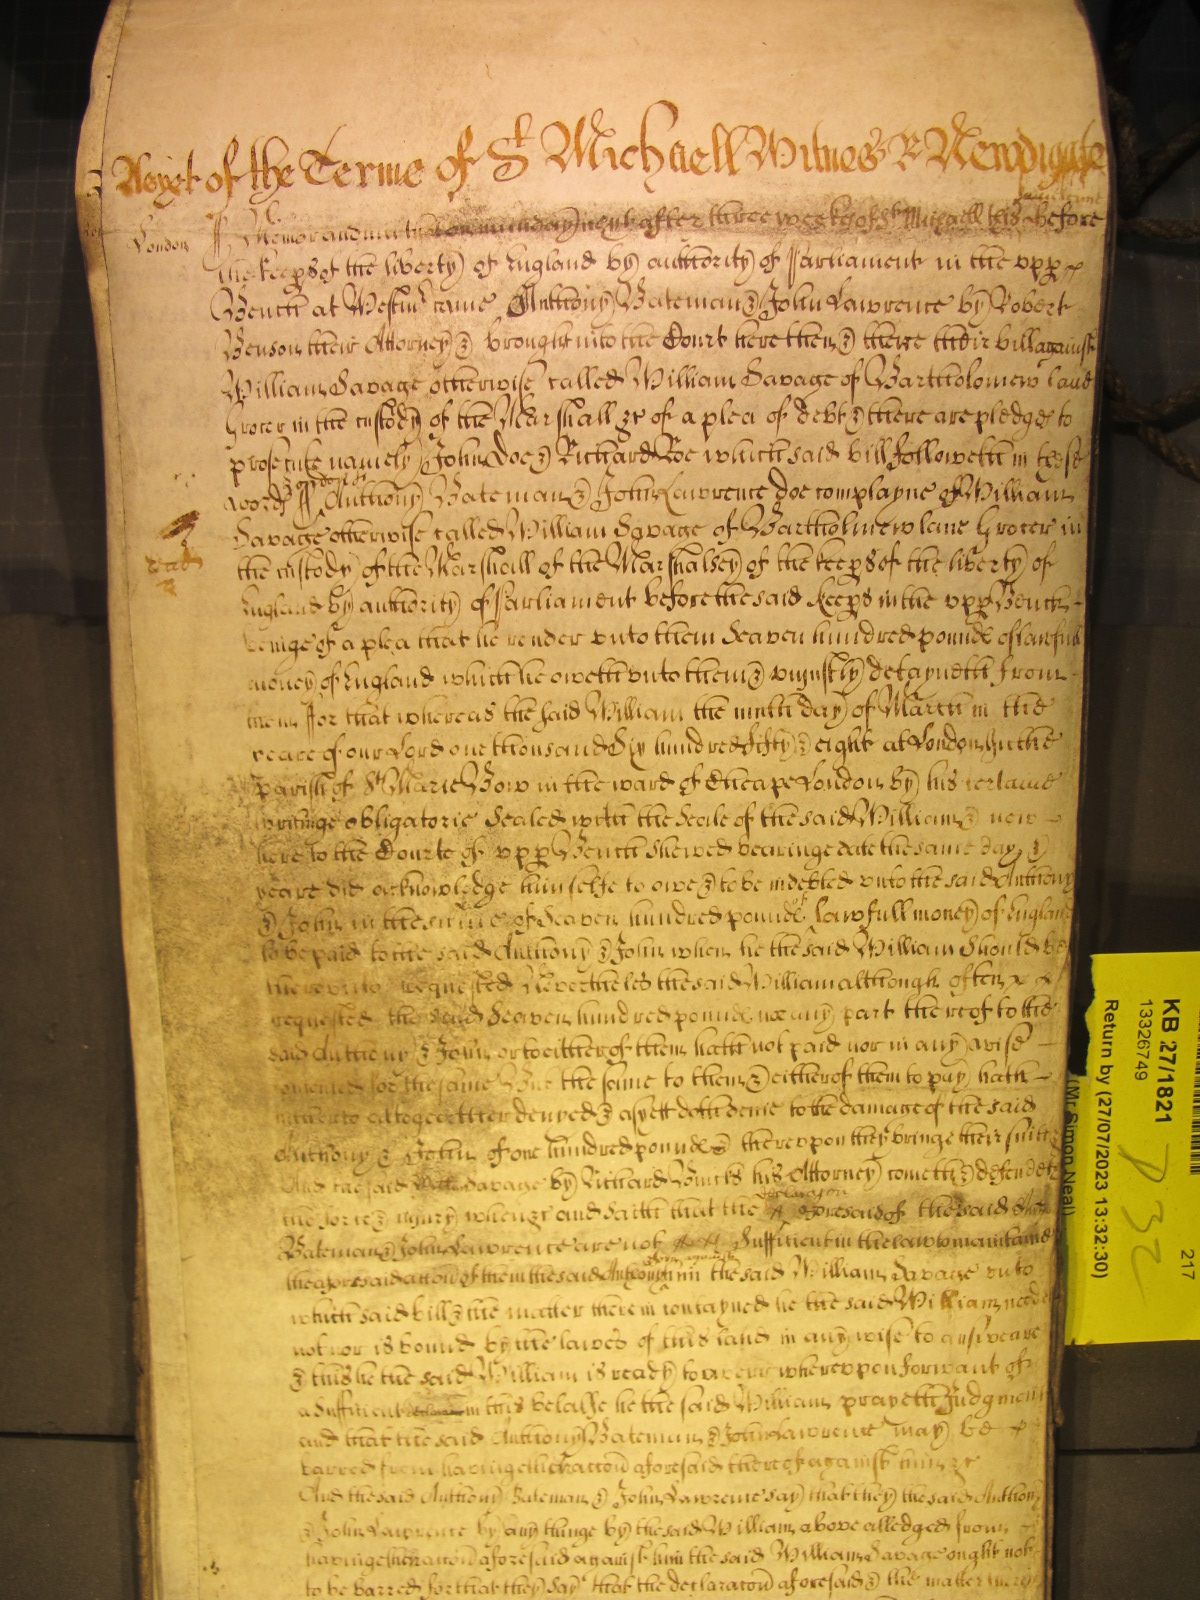 As yet of the Terme of St Michaell Witnes R Newdigate
London
Memorandum that on munday next after three weekes of St Michaell this same terme before
the keeps of the liberty of England by authority of Parliament in the upp
Bench at Westmr came Anthony Bateman & John Lawrence by Robert
Benson their Attorney & brought into the Court here then & there their bill against
William Savage otherwise called William Savage of Bartholomew lane
Grocer in the custody of the Marshall &c of a plea of debt & there are pledges to
prosecute namely John Doe & Richard Roe which said bill followeth in these
words ss London ss Anthony Bateman & John Lawrence doe complayne of William
Savage otherwise called William Savage of Bartholmew lane Grocer in
the custody of the Marshall of the Marshalsey of the keeps of the liberty of
England by authority of Parliament before the said keeps in the upp Bench
beinge of a plea that he render unto them Seaven hundred pounds of lawfull
money of England which he oweth unto them & uniustly detayneth from
them For that whereas the said William the ninth day of March in the
yeare of our Lord one thousand Six hundred fifty & eight at London In the
parish of St Marie Bow in the ward of Cheape London by his certaine
writinge obligatorie Sealed with the Seale of the said William & now
here to the Courte of upp Bench shewed bearinge date the same day &
yeare did acknowledge himselfe to owe & to be indebted unto the said Anthony
& John in the summe of Seaven hundred pounds of lawfull money of England
to be paid to the said Anthony & John when he the said William Should be
thereunto requested Neverthelesse the said William although often
requested the said Seaven hundred pounds nor any part thereof to the
said Anthony & John or to either of them hath not paid nor in any wise
contented for the same But the same to them & either of them to pay hath
hitherto altogeather denyed & as yett doth denie to the damage of the said
Anthony & John of one hundred pounds & thereupon they bringe their suite
And the said Savage by Richard his Attorney cometh & defendeth
the force & injury when &c and saith that the declaracon aforesaid of the said Anth
Bateman & John Lawrence are not Sufficient in the law to maintaine
the aforesaid accon of them the said Anthony & John against him the said William Savage unto
which said bill & the matter therein contayned he the said William needeth
not nor is bound by the lawes of this land in any wise to answeare
& this he the said William is ready to averr whereupon for want of
a Sufficient in this behalfe he the said William prayeth Judgment
and that the said Anthony Bateman & John Lawrence may be
barred from havinge their accon aforesaid thereof against him &c
And the said Anthony Bateman & John Lawrence say that they the said Anthony
& John Lawrence by any thinge by the said William above alledged from
havinge their accon aforesaid against him the said William Savage ought not
to be barred for that they say that the declaracon aforesaid & the matter therein
KB 27/1821
13326749
Return by (27/07/2023 13:32:30)
(Mr Simon Neal)
217